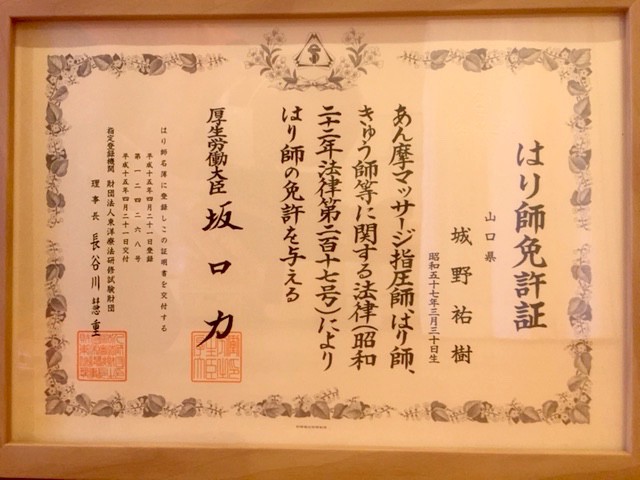 はり師免許証
山口県
城野祐樹
昭和五十七年三月三十日生
あん摩マッサージ指圧師、はり師、
きゅう師等に関する法律（昭和
二十二年法律第二百十七号）により
はり師の免許を与える
厚生労働大臣 坂口力
はり師名簿に登録しこの証明書を交付する
平成十五年四月二十一日登録
第一二四二六八号
平成十五年四月二十一日交付
指定登録機関 財団法人東洋療法研修試験財団
理事長 長谷川慧重